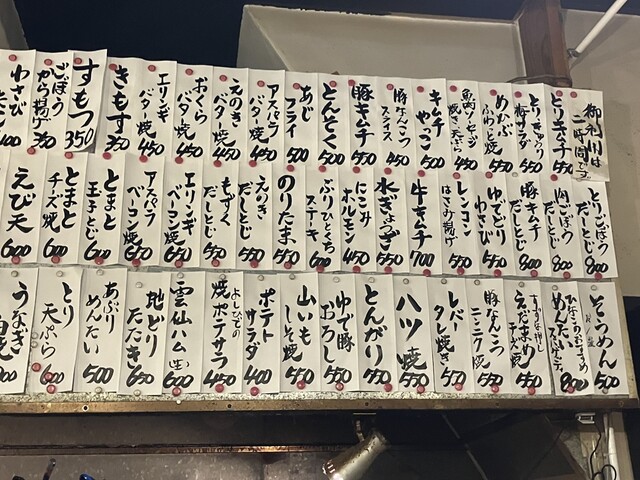 御利用は
二時間です
とりキムチ 550
とりきゅうり
梅サラダ 550
めかぶ
ふわっと焼 550
魚肉ソーセージ
焼き・天ぷら 450
キムチ
やっこ 500
豚なんこつ
スライス 450
豚キムチ 550
とんそく 500
あじ
フライ 500
アスパラ
バター焼 450
えのき
バター焼 450
おくら
バター焼 450
エリンギ
バター焼 450
きもす 350
すもつ 350
ごぼう
から揚げ 350
わさび
とりごぼう
だしとじ 800
肉ごぼう
だしとじ 800
豚キムチ
だしとじ 800
ゆでとり
わさび 550
レンコン
はさみ揚げ 550
牛キムチ 700
水ぎょうざ 550
にこみ
ホルモン 450
ぶりひとくち
ステーキ 600
のりたま 550
えのき
だしとじ 550
もずく
だしとじ 550
エリンギ
ベーコン焼 650
アスパラ
ベーコン焼 650
とまと
玉子とじ 600
とまと
チーズ焼 600
えび天 600
そうめん 500
めんたい
スパゲッティ 800
えだまめ
チーズ焼 550
豚なんこつ
ニンニク焼 550
レバー
タレ焼き 550
ハツ焼 550
とんがり 550
ゆで豚
おろし 550
山いも
しそ焼 550
ポテト
サラダ 400
よしひでの
焼ポテサラ 450
雲仙ハム(生) 600
地どり
たたき 650
あぶり
めんたい 500
とり
天ぷら 600
うなぎ
白焼